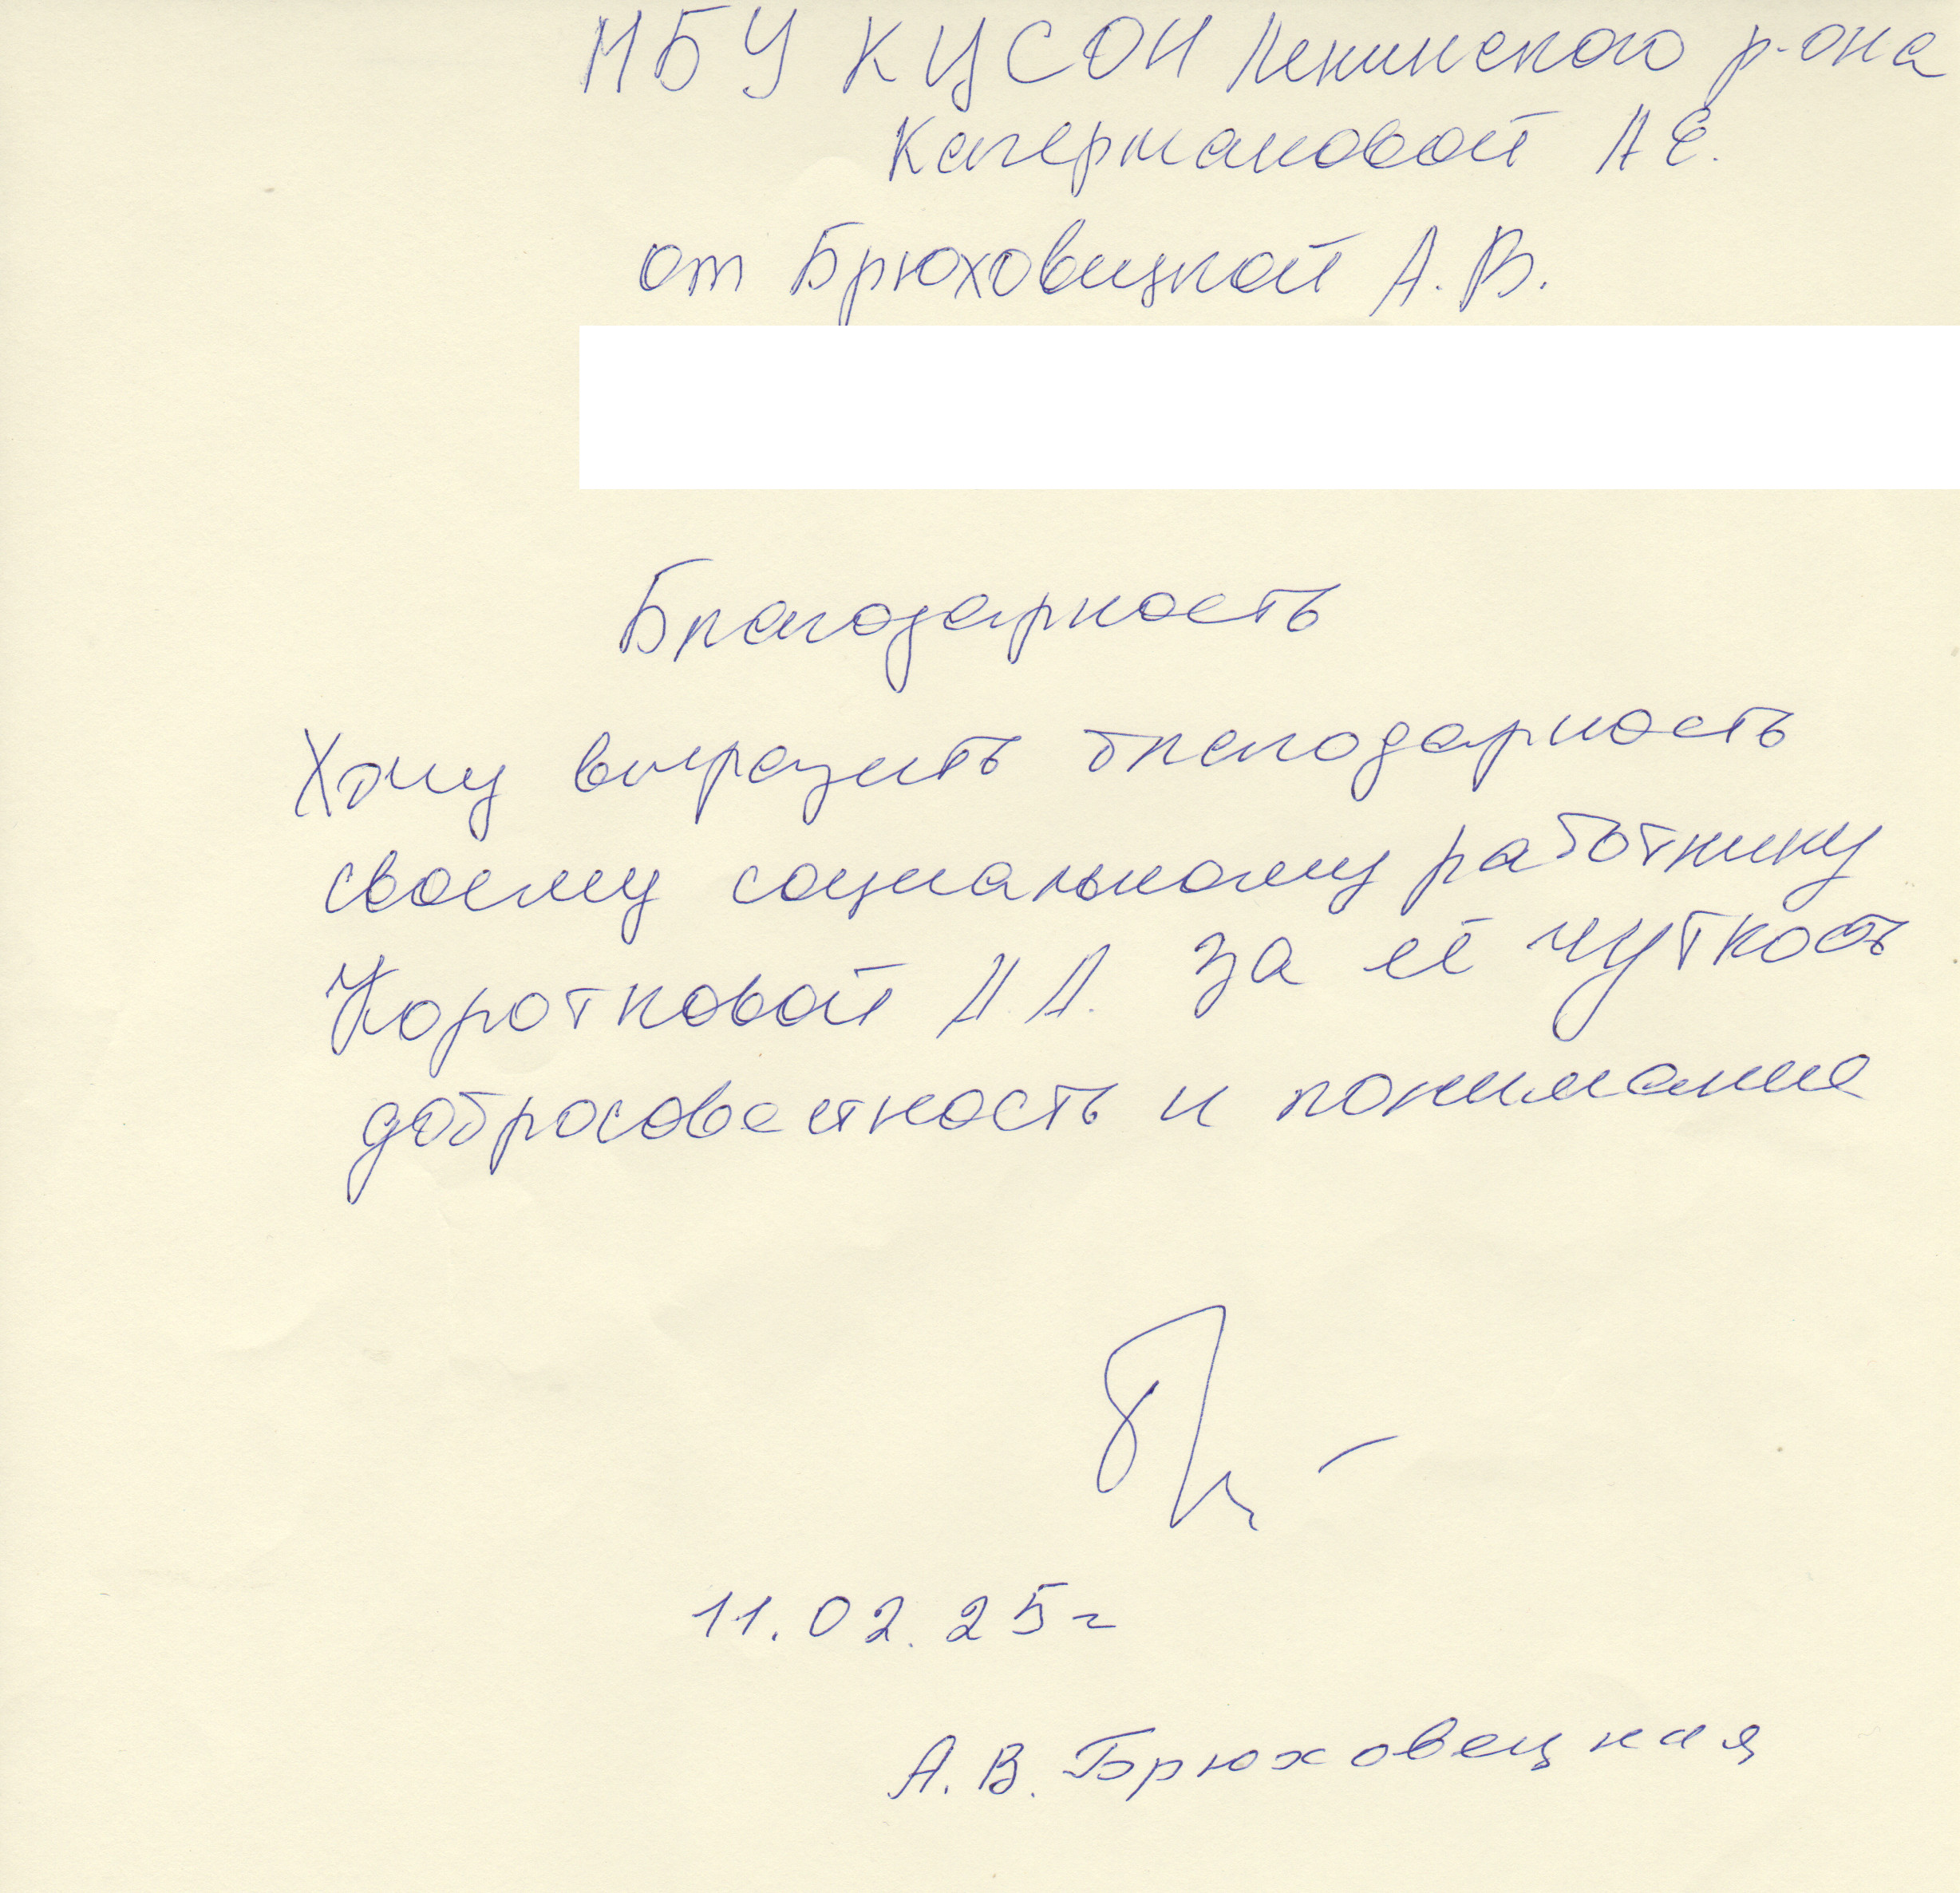 МБУ КЦСОН Ленинского р-она
Кагермановой А Е.
от Брюховицкой А. В.
Благодарность
Хочу выразить благодарность
своему социальному работнику
Коротковой А. А. за её чуткость
добросовестность и понимание
11.02.25г
А. В. Брюховецкая